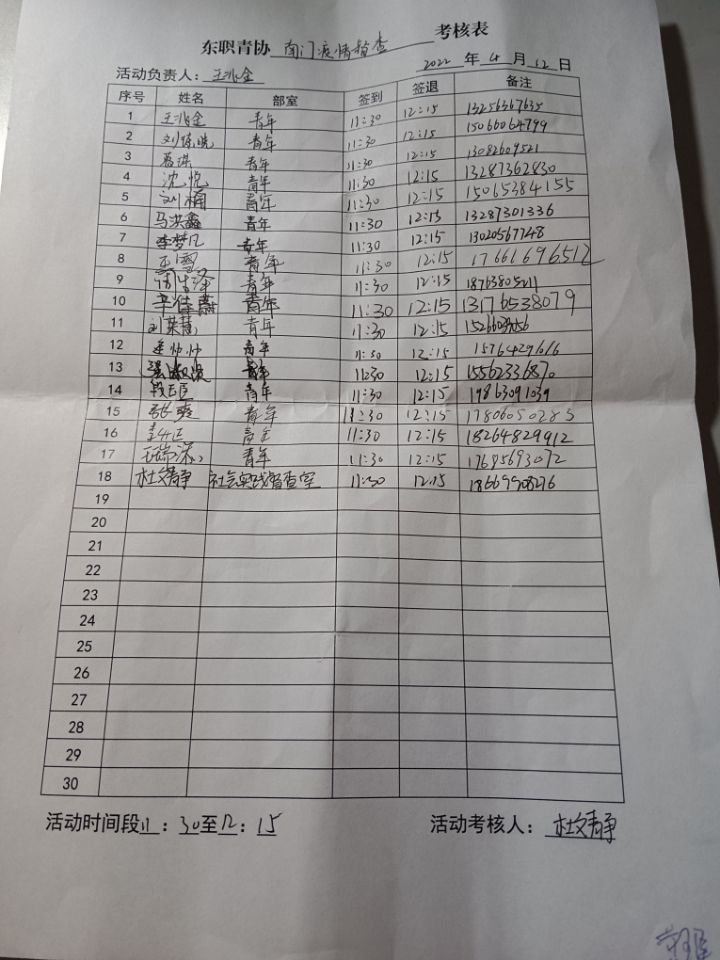 东职青协 南门疫情督查 考核表
活动负责人：王兆金 2022 年 4 月 12 日
序号 姓名 部室 签到 签退 备注
1 王兆金 青年 11:30 12:15 13256367635
2 刘 青年 11:30 12:15 15066064799
3 葛琪 青年 11:30 12:15 13082609521
4 沈悦 青年 11:30 12:15 13287362830
5 刘楠 青年 11:30 12:15 15065384155
6 马洪鑫 青年 11:30 12:15 13287301336
7 李梦凡 青年 11:30 12:15 13020567748
8 青年 11:30 12:15 17661696512
9 青年 11:30 12:15 18763805211
10 辛佳蔚 青年 11:30 12:15 13176538079
11 刘英慧 青年 11:30 12:15
12 青年 11:30 12:15 15764291616
13 青年 11:30 12:15 15562336870
14 段玉臣 青年 11:30 12:15 19863091039
15 张爽 青年 11:30 12:15 17806050285
16 青年 11:30 12:15 18264829912
17 青年 11:30 12:15 17685693072
18 杜文静 社会实践督查室 11:30 12:15 18669908276
19
20
21
22
23
24
25
26
27
28
29
30
活动时间段11：30至12：15 活动考核人：杜文静